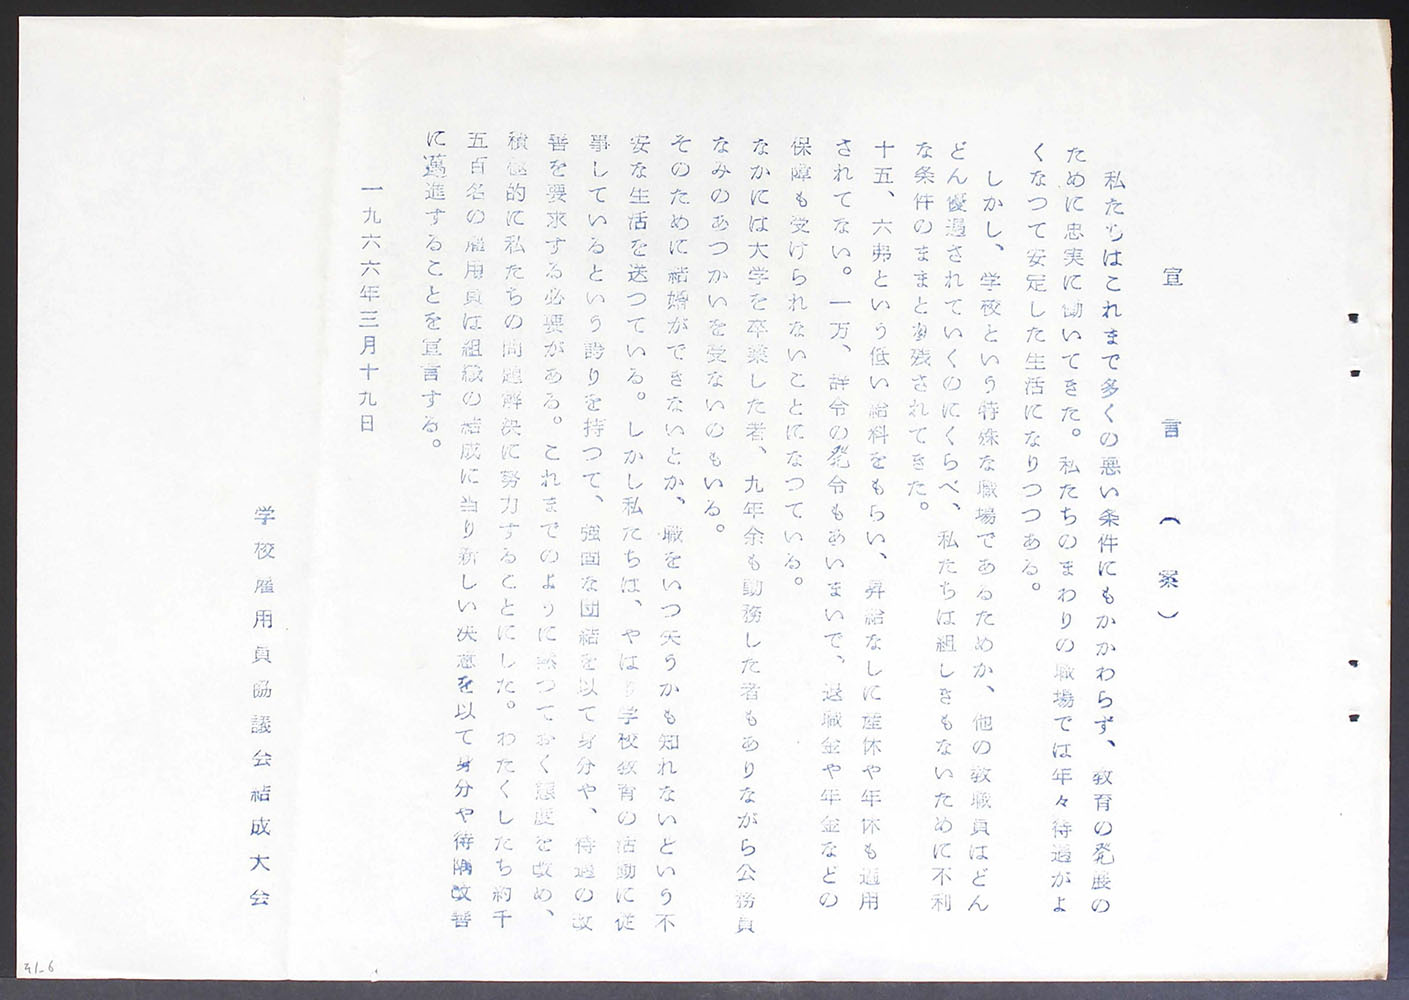 宣言（案）
私たちはこれまで多くの悪い条件にもかかわらず、教育の発展の
ために忠実に働いてきた。私たちのまわりの職場では年々待遇がよ
くなつて安定した生活になりつつある。
しかし、学校という特殊な職場であるためか、他の教職員はどん
どん優遇されていくのにくらべ、私たちは組しきもないために不利
な条件のままとり残されてきた。
十五、六弗という低い給料をもらい、昇給なしに産休や年休も適用
されてない。一万、辞令の発令もあいまいで、退職金や年金などの
保障も受けられないことになつている。
なかには大学を卒業した者、九年余も勤務した者もありながら公務員
なみのあつかいを受ないのもいる。
そのために結婚ができないとか、職をいつ失うかも知れないという不
安な生活を送つている。しかし私たちは、やはり学校教育の活動に従
事しているという誇りを持つて、強固な団結を以て身分や、待遇の改
善を要求する必要がある。これまでのように黙つておく態度を改め、
積極的に私たちの問題解決に努力することにした。わたくしたち約千
五百名の雇用員は組織の結成に当り新しい決意を以て身分や待隅改善
に邁進することを宣言する。
一九六六年三月十九日
学校雇用員協議会結成大会
21-6